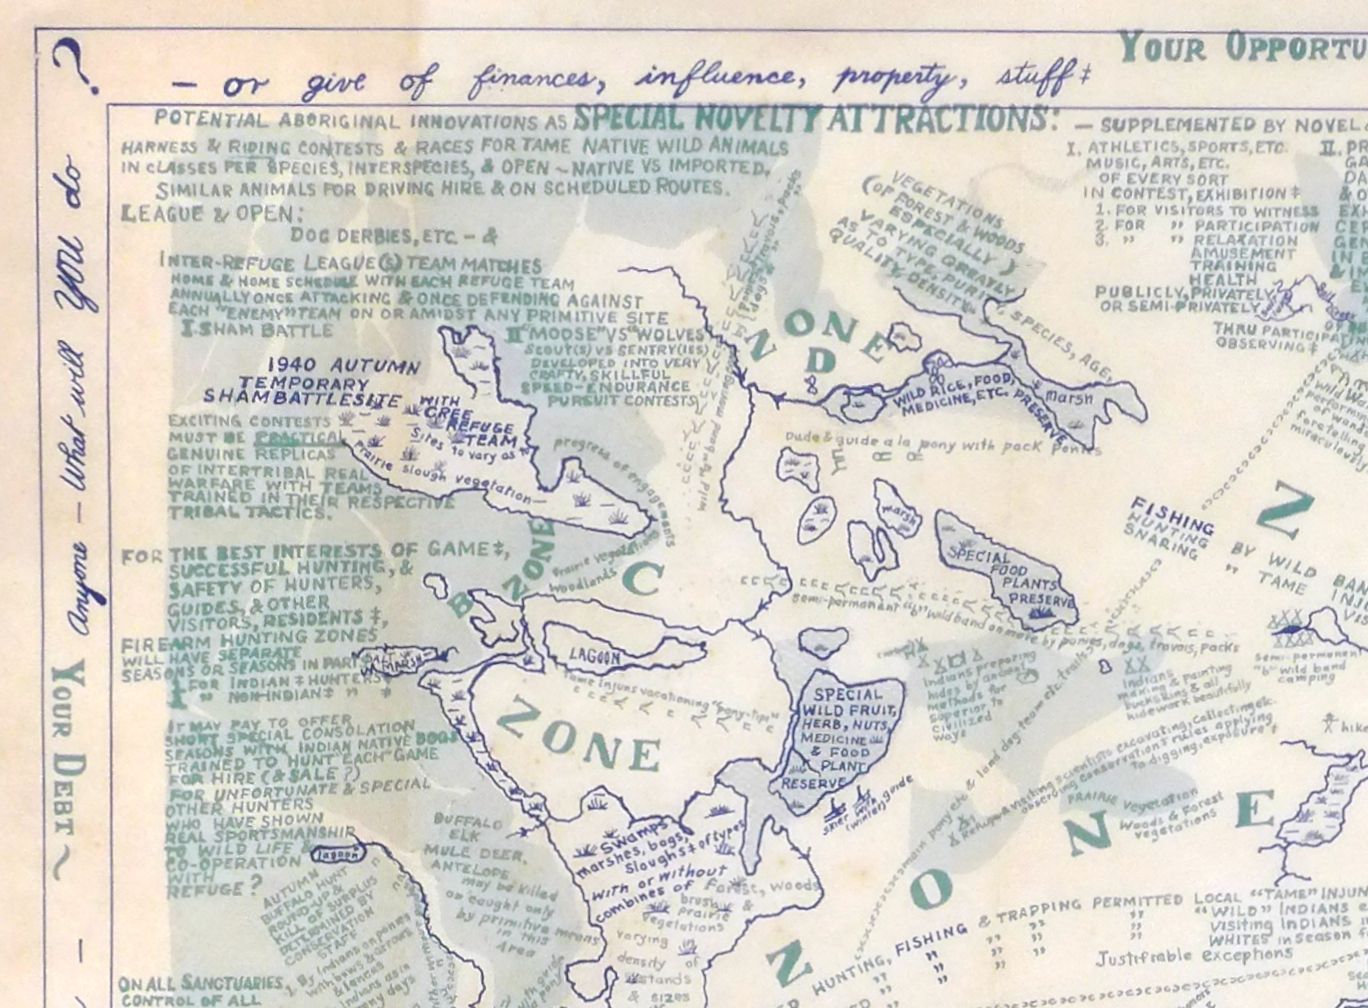 YOUR OPPORTU
— or give of finances, influence, property, stuff‡
Anyone — What will YOU do ?
YOUR DEBT ~
POTENTIAL ABORIGINAL INNOVATIONS AS SPECIAL NOVELTY ATTRACTIONS: — SUPPLEMENTED BY NOVEL
HARNESS & RIDING CONTESTS & RACES FOR TAME NATIVE WILD ANIMALS
IN CLASSES PER SPECIES, INTERSPECIES, & OPEN ~ NATIVE VS IMPORTED.
SIMILAR ANIMALS FOR DRIVING HIRE & ON SCHEDULED ROUTES.
LEAGUE & OPEN:
DOG DERBIES, ETC – &
INTER-REFUGE LEAGUE(S) TEAM MATCHES
HOME & HOME SCHEDULE WITH EACH REFUGE TEAM
ANNUALLY ONCE ATTACKING & ONCE DEFENDING AGAINST
EACH "ENEMY" TEAM ON OR AMIDST ANY PRIMITIVE SITE
I. SHAM BATTLE
II "MOOSE" VS "WOLVES"
SCOUT(S) VS SENTRY(IES)
DEVELOPED INTO VERY
CRAFTY, SKILLFUL
SPEED-ENDURANCE
PURSUIT CONTESTS
1940 AUTUMN
TEMPORARY
SHAMBATTLESITE WITH
CREE
REFUGE
TEAM
Sites to vary as to
Prairie slough vegetation—
EXCITING CONTESTS
MUST BE PRACTICAL
GENUINE REPLICAS
OF INTERTRIBAL REAL
WARFARE WITH TEAMS
TRAINED IN THEIR RESPECTIVE
TRIBAL TACTICS.
progress of engagements
FOR THE BEST INTERESTS OF GAME‡,
SUCCESSFUL HUNTING, &
SAFETY OF HUNTERS,
GUIDES, & OTHER
VISITORS, RESIDENTS ‡,
FIREARM HUNTING ZONES
WILL HAVE SEPARATE
SEASONS OR SEASONS IN PART
I FOR INDIAN ‡ HUNTERS
" NON-INDIAN ‡ " "
IT MAY PAY TO OFFER
SHORT SPECIAL CONSOLATION
SEASONS WITH INDIAN NATIVE DOGS
TRAINED TO HUNT EACH GAME
FOR HIRE (& SALE ?)
FOR UNFORTUNATE & SPECIAL
OTHER HUNTERS
WHO HAVE SHOWN
REAL SPORTSMANSHIP
TO WILD LIFE &
CO-OPERATION
WITH
REFUGE ?
lagoon
AUTUMN
BUFFALO HUNT
ROUND-UP &
KILL OF SURPLUS
DETERMINED BY
CONSERVATION
STAFF
1. By Indians on ponies
with bows & arrows
& lances
ON ALL SANCTUARIES,
CONTROL OF ALL
BUFFALO
ELK
MULE DEER,
ANTELOPE
may be killed
or caught only
by primitive means
in this
Area
B ZONE
C
Prairie vegetation
woodlands
SALT
MARSH
LAGOON
Tame Injuns vacationing "pony-tipi"
ZONE
Swamps
marshes, bogs,
Sloughs ‡ of types
with or without
combines of Forest, woods
brush &
prairie
vegetations
varying
density of
stands
& sizes
VEGETATIONS
(OF FOREST & WOODS
ESPECIALLY)
VARYING GREATLY
AS TO TYPE, PURITY,
QUALITY, DENSITY, SPECIES, AGE,
ZONE
D
WILD RICE, FOOD,
MEDICINE, ETC. PRESERVE
marsh
Dude & guide a la pony with pack ponies
marsh
SPECIAL
FOOD
PLANTS
PRESERVE
semi-permanent "b" wild band on move by ponies, dogs, travois, packs
SPECIAL
WILD FRUIT,
HERB, NUTS,
MEDICINE
& FOOD
PLANT
RESERVE
skier with guide
(winter)
Indians preparing
hides by ancient
methods far
superior to
civilized
ways
Indians
making & Painting
buckskins & all
hidework beautifully
pony etc & land dog-team etc. trails
Refuge & visiting scientists excavating, collecting etc.
observing conservation's rules applying
to digging, exposure ‡
PRAIRIE vegetation
Woods & Forest
vegetations
I. ATHLETICS, SPORTS, ETC.
MUSIC, ARTS, ETC.
OF EVERY SORT
IN CONTEST, EXHIBITION ‡
1. FOR VISITORS TO WITNESS
2. FOR " PARTICIPATION
3. " " RELAXATION
AMUSEMENT
TRAINING
HEALTH
PUBLICLY, PRIVATELY,
OR SEMI-PRIVATELY
THRU PARTICIPA
OBSERVING ‡
II. PR
FISHING
HUNTING
SNARING
BY WILD BAN
" TAME INJ
semi-permanent
"b" wild band
camping
hik
Z O N E
HUNTING, FISHING & TRAPPING PERMITTED LOCAL "TAME" INJUN
" " " " "WILD" INDIANS
" " " " Visiting INDIANS
" " " " WHITES in season
Justifiable exceptions